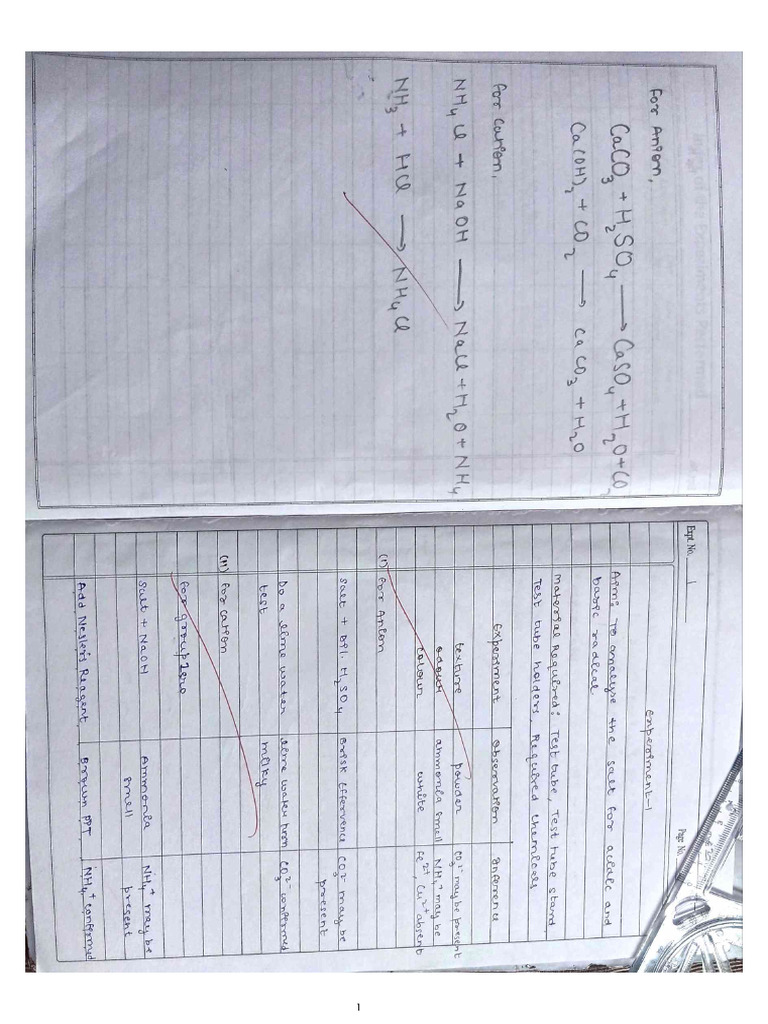 For Anion,
CaCO3 + H2SO4 → CaSO4 + H2O + CO2
Ca(OH)2 + CO2 → CaCO3 + H2O
For Cation,
NH4Cl + NaOH → NaCl + H2O + NH4
NH3 + HCl → NH4Cl
Expt. No. 1
Page No.
Experiment-1
Aim: To analyse the salt for acidic and
basic radical
Material Required: Test tube, Test tube stand
Test tube holders, Required chemicals
Experiment Observation Inference
texture powder CO3 2- may be present
odour ammonia smell NH4+ may be
colour white Fe2+, Cu2+ absent
(I) For Anion
Salt + Dil. H2SO4 Brisk Effervence CO3 2- may be
present
Do a lime water lime water turn CO3 2- confirmed
test milky
(II) For cation
For group zero
Salt + NaOH Ammonia NH4+ may be
smell present
Add Nesler's Reagent, Brown PPT NH4+ confirmed
1